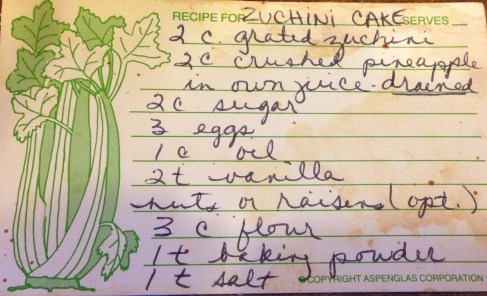 RECIPE FOR ZUCHINI CAKE SERVES
2 c grated zuchini
2 c crushed pineapple
in own juice - drained
2 c sugar
3 eggs
1 c oil
2 t vanilla
nuts or raisens (opt.)
3 c flour
1 t baking powder
1 t salt
©COPYRIGHT ASPENGLAS CORPORATION